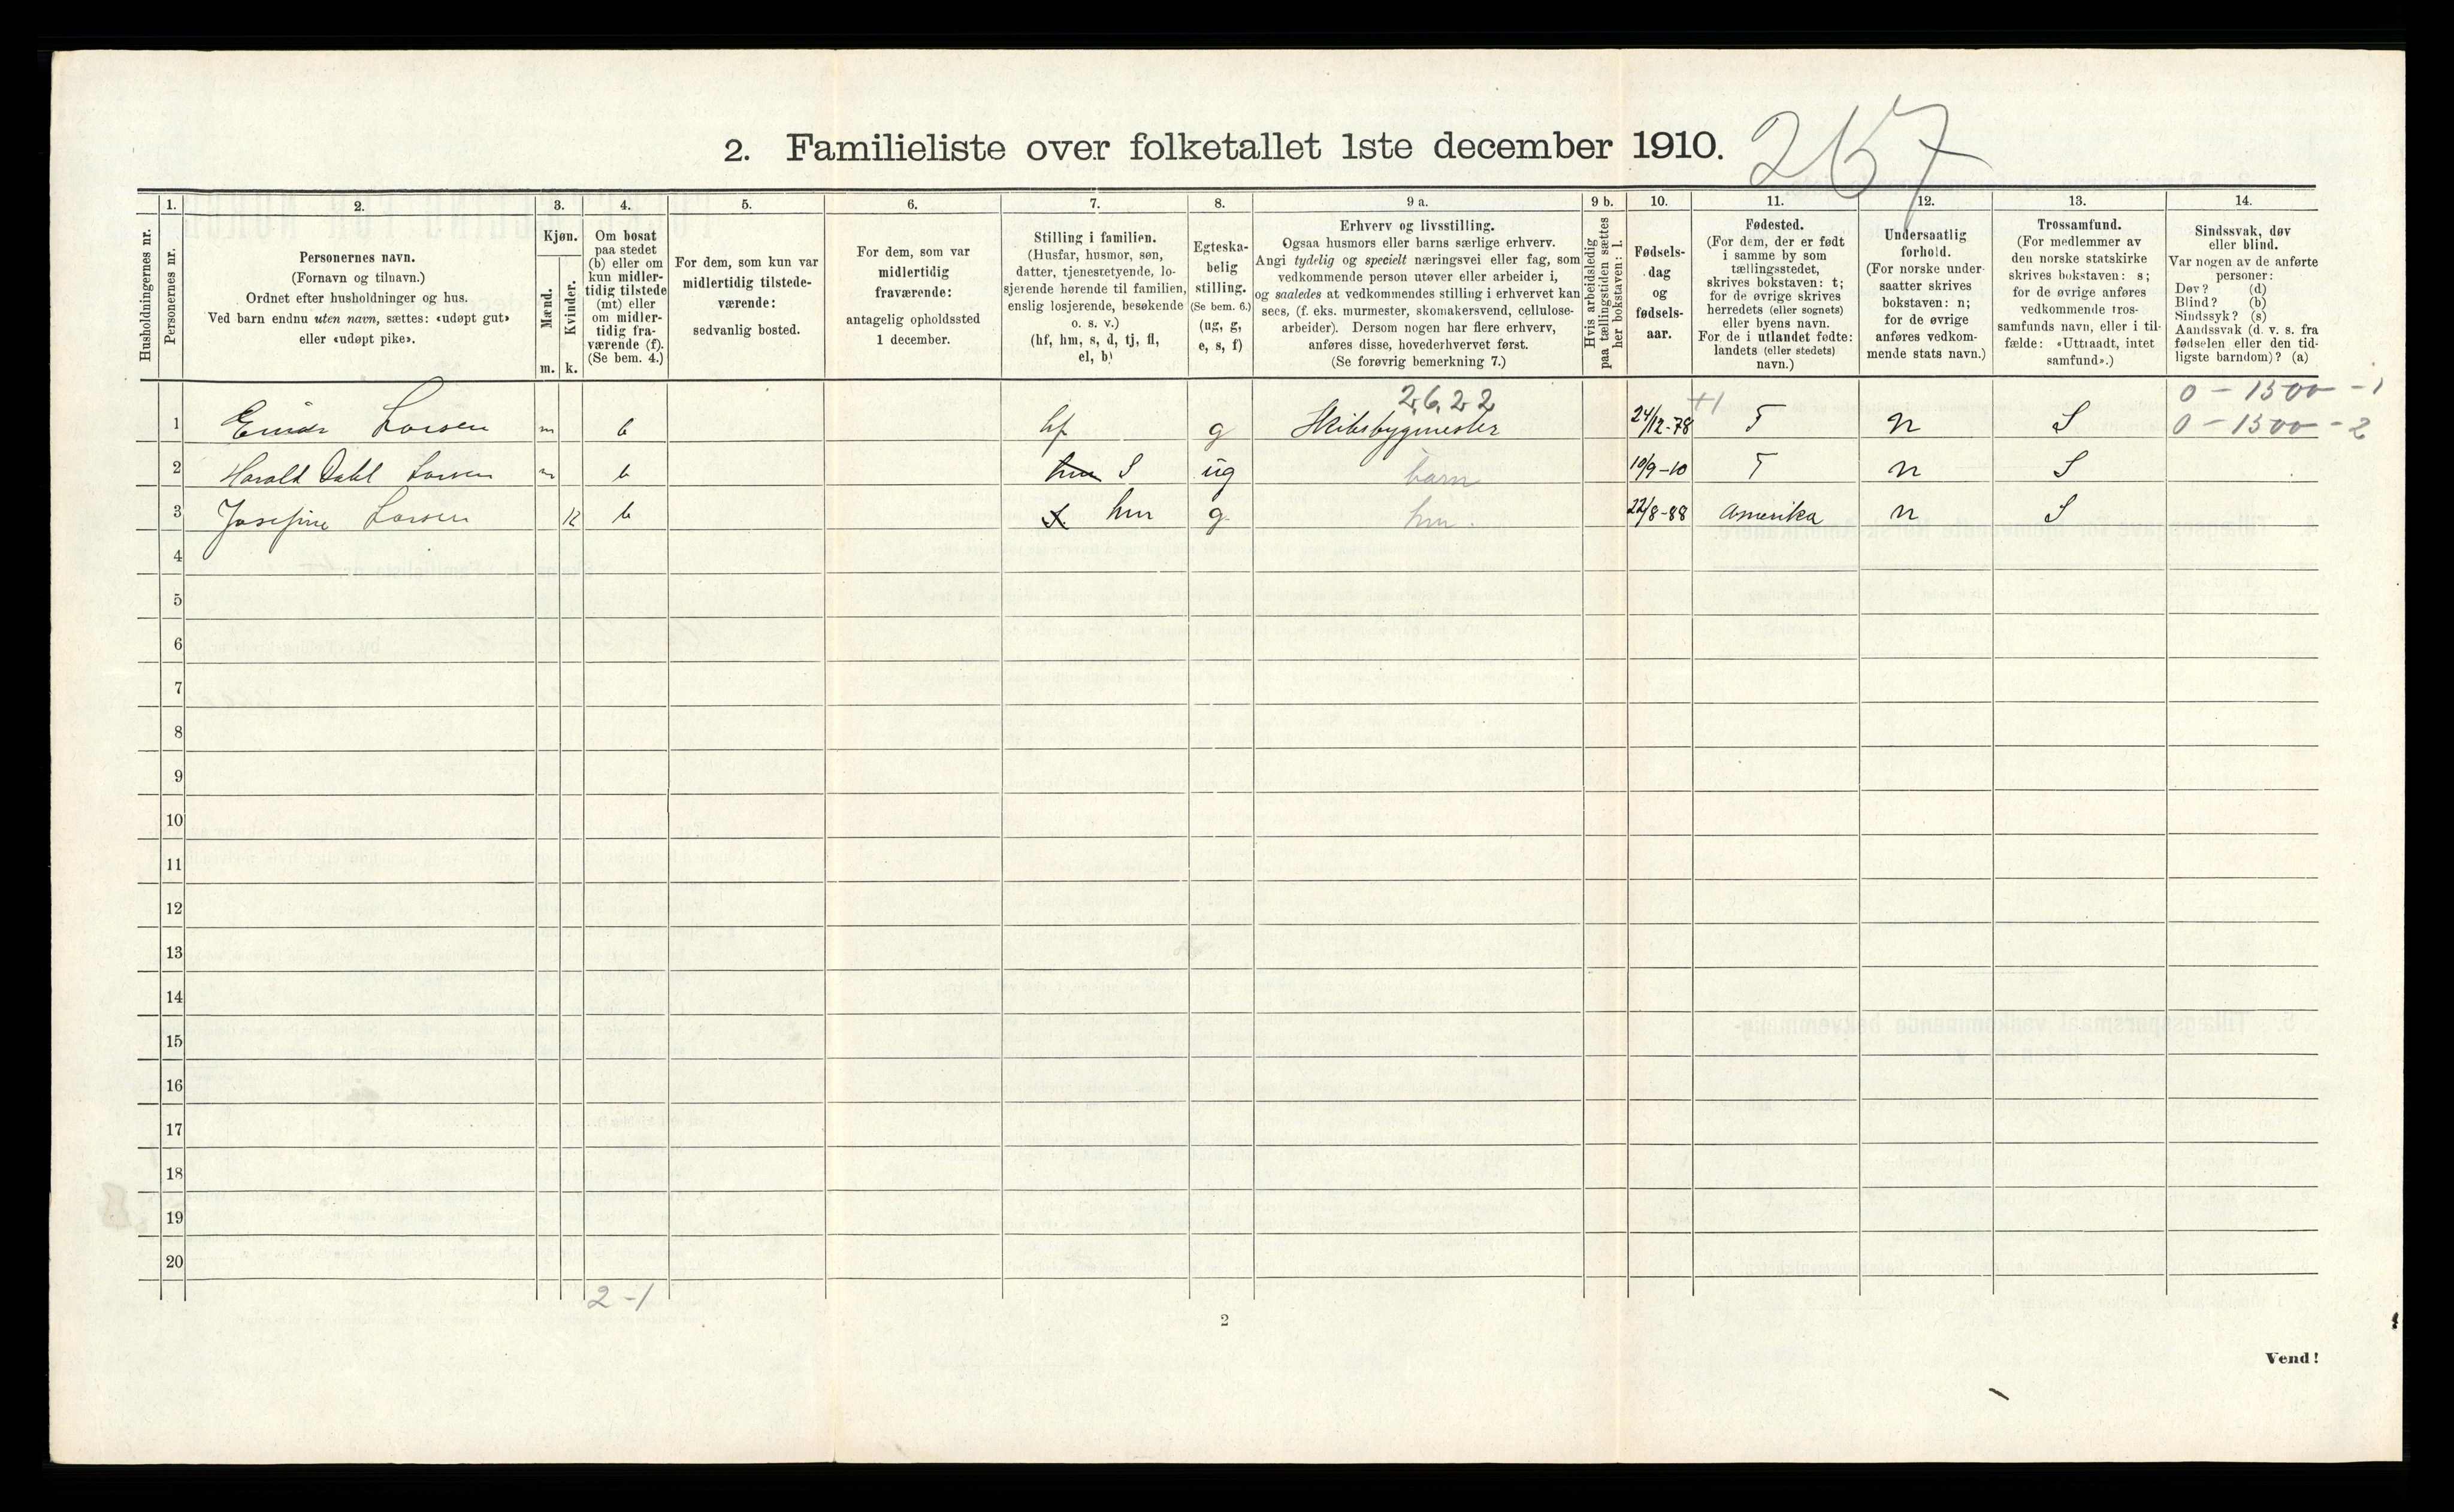 2. Familieliste over folketallet 1ste december 1910.
267
Husholdningernes nr.
1.
Personernes nr.
2.
Personernes navn.
(Fornavn og tilnavn.)
Ordnet efter husholdninger og hus.
Ved barn endnu uten navn, sættes: «udøpt gut»
eller «udøpt pike».
3.
Kjøn.
Mænd.
Kvinder.
m. k.
4.
Om bosat
paa stedet
(b) eller om
kun midler-
tidig tilstede
(mt) eller
om midler-
tidig fra-
værende (f).
(Se bem. 4.)
5.
For dem, som kun var
midlertidig tilstede-
værende:
sedvanlig bosted.
6.
For dem, som var
midlertidig
fraværende:
antagelig opholdssted
1 december.
7.
Stilling i familien.
(Husfar, husmor, søn,
datter, tjenestetyende, lo-
sjerende hørende til familien,
enslig losjerende, besøkende
o. s. v.)
(hf, hm, s, d, tj, fl,
el, b)
8.
Egteska-
belig
stilling.
(Se bem. 6.)
(ug, g,
e, s, f)
9 a.
Erhverv og livsstilling.
Ogsaa husmors eller barns særlige erhverv.
Angi tydelig og specielt næringsvei eller fag, som
vedkommende person utøver eller arbeider i,
og saaledes at vedkommendes stilling i erhvervet kan
sees, (f. eks. murmester, skomakersvend, cellulose-
arbeider). Dersom nogen har flere erhverv,
anføres disse, hovederhvervet først.
(Se forøvrig bemerkning 7.)
9 b.
Hvis arbeidsledig
paa tællingstiden sættes
her bokstaven: l.
10.
Fødsels-
dag
og
fødsels-
aar.
11.
Fødested.
(For dem, der er født
i samme by som
tællingsstedet,
skrives bokstaven: t;
for de øvrige skrives
herredets (eller sognets)
eller byens navn.
For de i utlandet fødte:
landets (eller stedets)
navn.)
12.
Undersaatlig
forhold.
(For norske under-
saatter skrives
bokstaven: n;
for de øvrige
anføres vedkom-
mende stats navn.)
13.
Trossamfund.
(For medlemmer av
den norske statskirke
skrives bokstaven: s;
for de øvrige anføres
vedkommende tros-
samfunds navn, eller i til-
fælde: «Uttraadt, intet
samfund».)
14.
Sindssvak, døv
eller blind.
Var nogen av de anførte
personer:
Døv? (d)
Blind? (b)
Sindssyk? (s)
Aandssvak (d. v. s. fra
fødselen eller den tid-
ligste barndom)? (a)
2,6,22 +1 0 - 1500 - 1
1 Einar Larsen m b hf g Skibsbygmester 24/12-78 T n S 0 - 1500 - 2
2 Harald Dahl Larsen m b hm S ug barn 10/9-10 T n S
3 Josefine Larsen k b S. hm g hm. 22/8-88 Amerika n S
4
5
6
7
8
9
10
11
12
13
14
15
16
17
18
19
20
2-1
2
Vend!